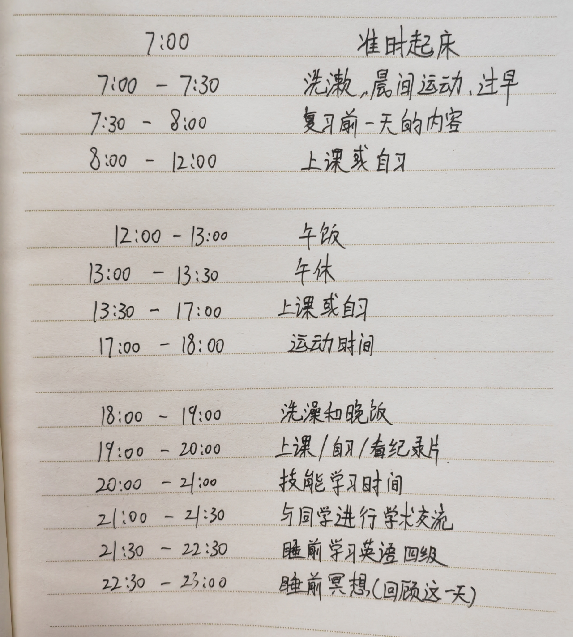 7:00 准时起床
7:00 - 7:30 洗漱、晨间运动、过早
7:30 - 8:00 复习前一天的内容
8:00 - 12:00 上课或自习
12:00 - 13:00 午饭
13:00 - 13:30 午休
13:30 - 17:00 上课或自习
17:00 - 18:00 运动时间
18:00 - 19:00 洗澡和晚饭
19:00 - 20:00 上课/自习/看纪录片
20:00 - 21:00 技能学习时间
21:00 - 21:30 与同学进行学术交流
21:30 - 22:30 睡前学习英语四级
22:30 - 23:00 睡前冥想(回顾这一天)